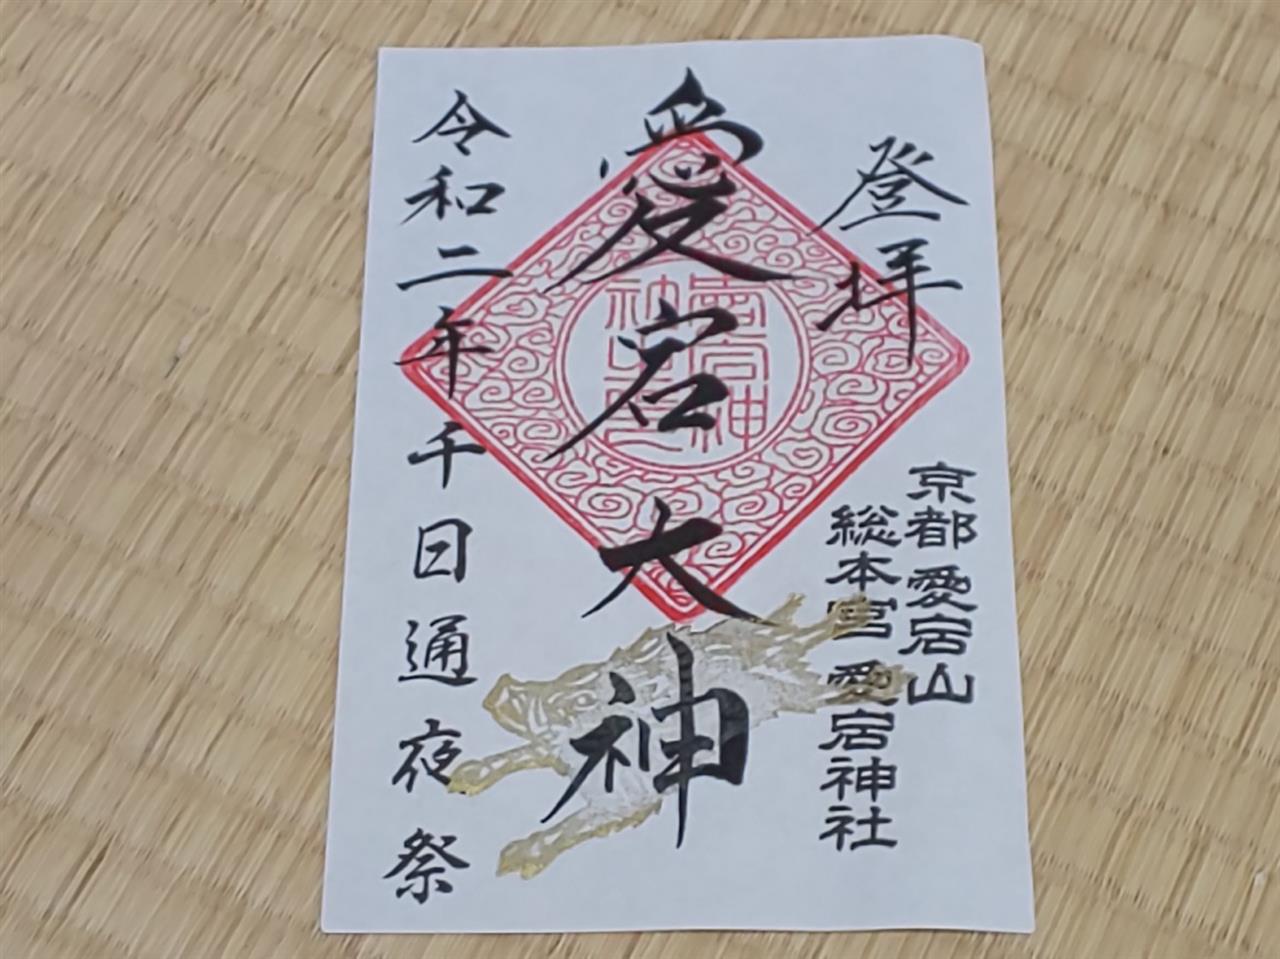 登拝
京都愛宕山
総本宮愛宕神社
愛宕大神
愛宕神
社之印
令和二年千日通夜祭